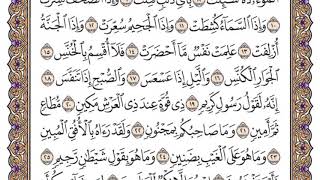 ٱلْمَوْءُۥدَةُ سُئِلَتْ ٨ بِأَيِّ ذَنۢبٍ قُتِلَتْ ٩ وَإِذَا ٱلصُّحُفُ نُشِرَتْ
١٠ وَإِذَا ٱلسَّمَآءُ كُشِطَتْ ١١ وَإِذَا ٱلْجَحِيمُ سُعِّرَتْ ١٢ وَإِذَا ٱلْجَنَّةُ
أُزْلِفَتْ ١٣ عَلِمَتْ نَفْسٌ مَّآ أَحْضَرَتْ ١٤ فَلَآ أُقْسِمُ بِٱلْخُنَّسِ ١٥
ٱلْجَوَارِ ٱلْكُنَّسِ ١٦ وَٱلَّيْلِ إِذَا عَسْعَسَ ١٧ وَٱلصُّبْحِ إِذَا تَنَفَّسَ ١٨
إِنَّهُۥ لَقَوْلُ رَسُولٍ كَرِيمٍ ١٩ ذِى قُوَّةٍ عِندَ ذِى ٱلْعَرْشِ مَكِينٍ ٢٠ مُّطَاعٍ
ثَمَّ أَمِينٍ ٢١ وَمَا صَاحِبُكُم بِمَجْنُونٍ ٢٢ وَلَقَدْ رَءَاهُ بِٱلْأُفُقِ ٱلْمُبِينِ
٢٣ وَمَا هُوَ عَلَى ٱلْغَيْبِ بِضَنِينٍ ٢٤ وَمَا هُوَ بِقَوْلِ شَيْطَٰنٍ رَّجِيمٍ ٢٥